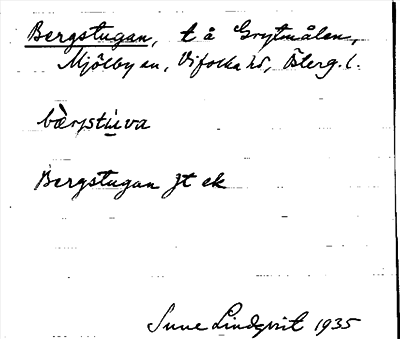 Bergstugan, t å Grytmålen,
Mjölby sn, Vifolka hd, Österg. l.
bærstu̇va
Bergstugan Jt ek
Sune Lindqvist 1935